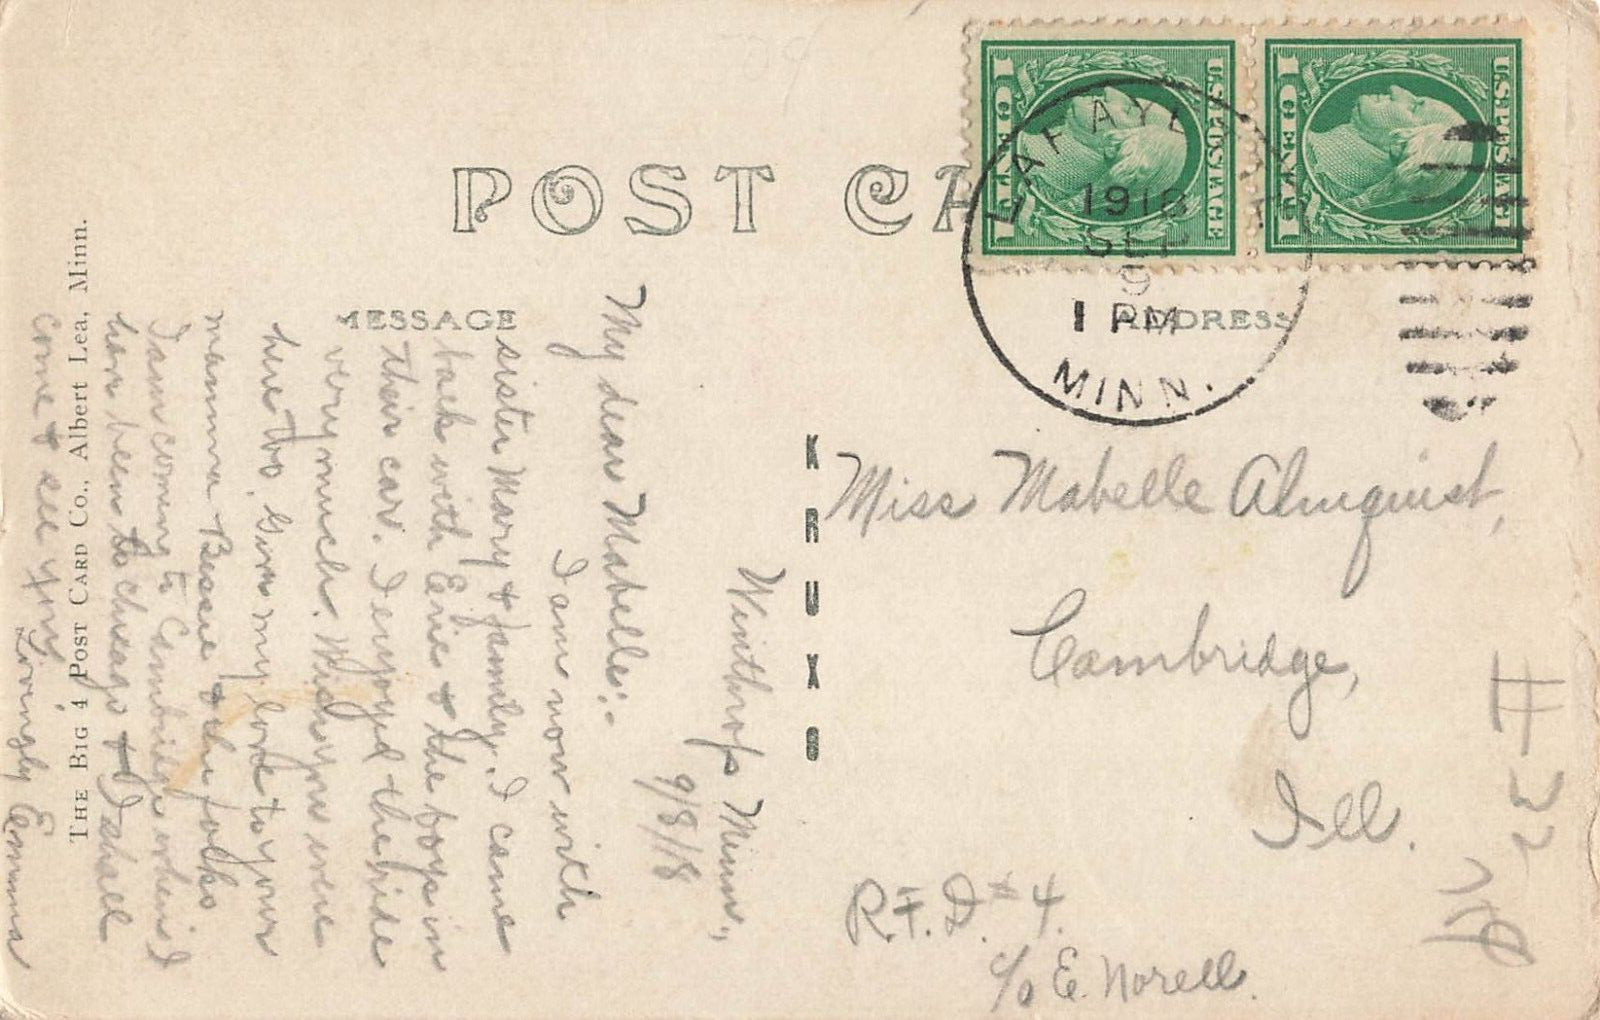 POST CA
MESSAGE
ADDRESS
U.S. POSTAGE
1 CENT 1
U.S. POSTAGE
1 CENT 1
LAFAYE
1918
SEP
9
1 PM
MINN.
Winthrop Minn.,
9/8/18
My dear Mabelle:-
I am now with
sister Mary & family. I came
back with Evie & the boys in
their car. I enjoyed the ride
very much. Wish you were
here too. Give my love to your
mamma Bessie & the folks
I am coming to Cambridge when I
have been to Chicago & I shall
come & see you.
Lovingly Emma
THE BIG 4 POST CARD CO., ALBERT LEA, MINN.
KRUXO
Miss Mabelle Almquist,
Cambridge,
Ill.
R.F.D. #4.
c/o E. Norell.